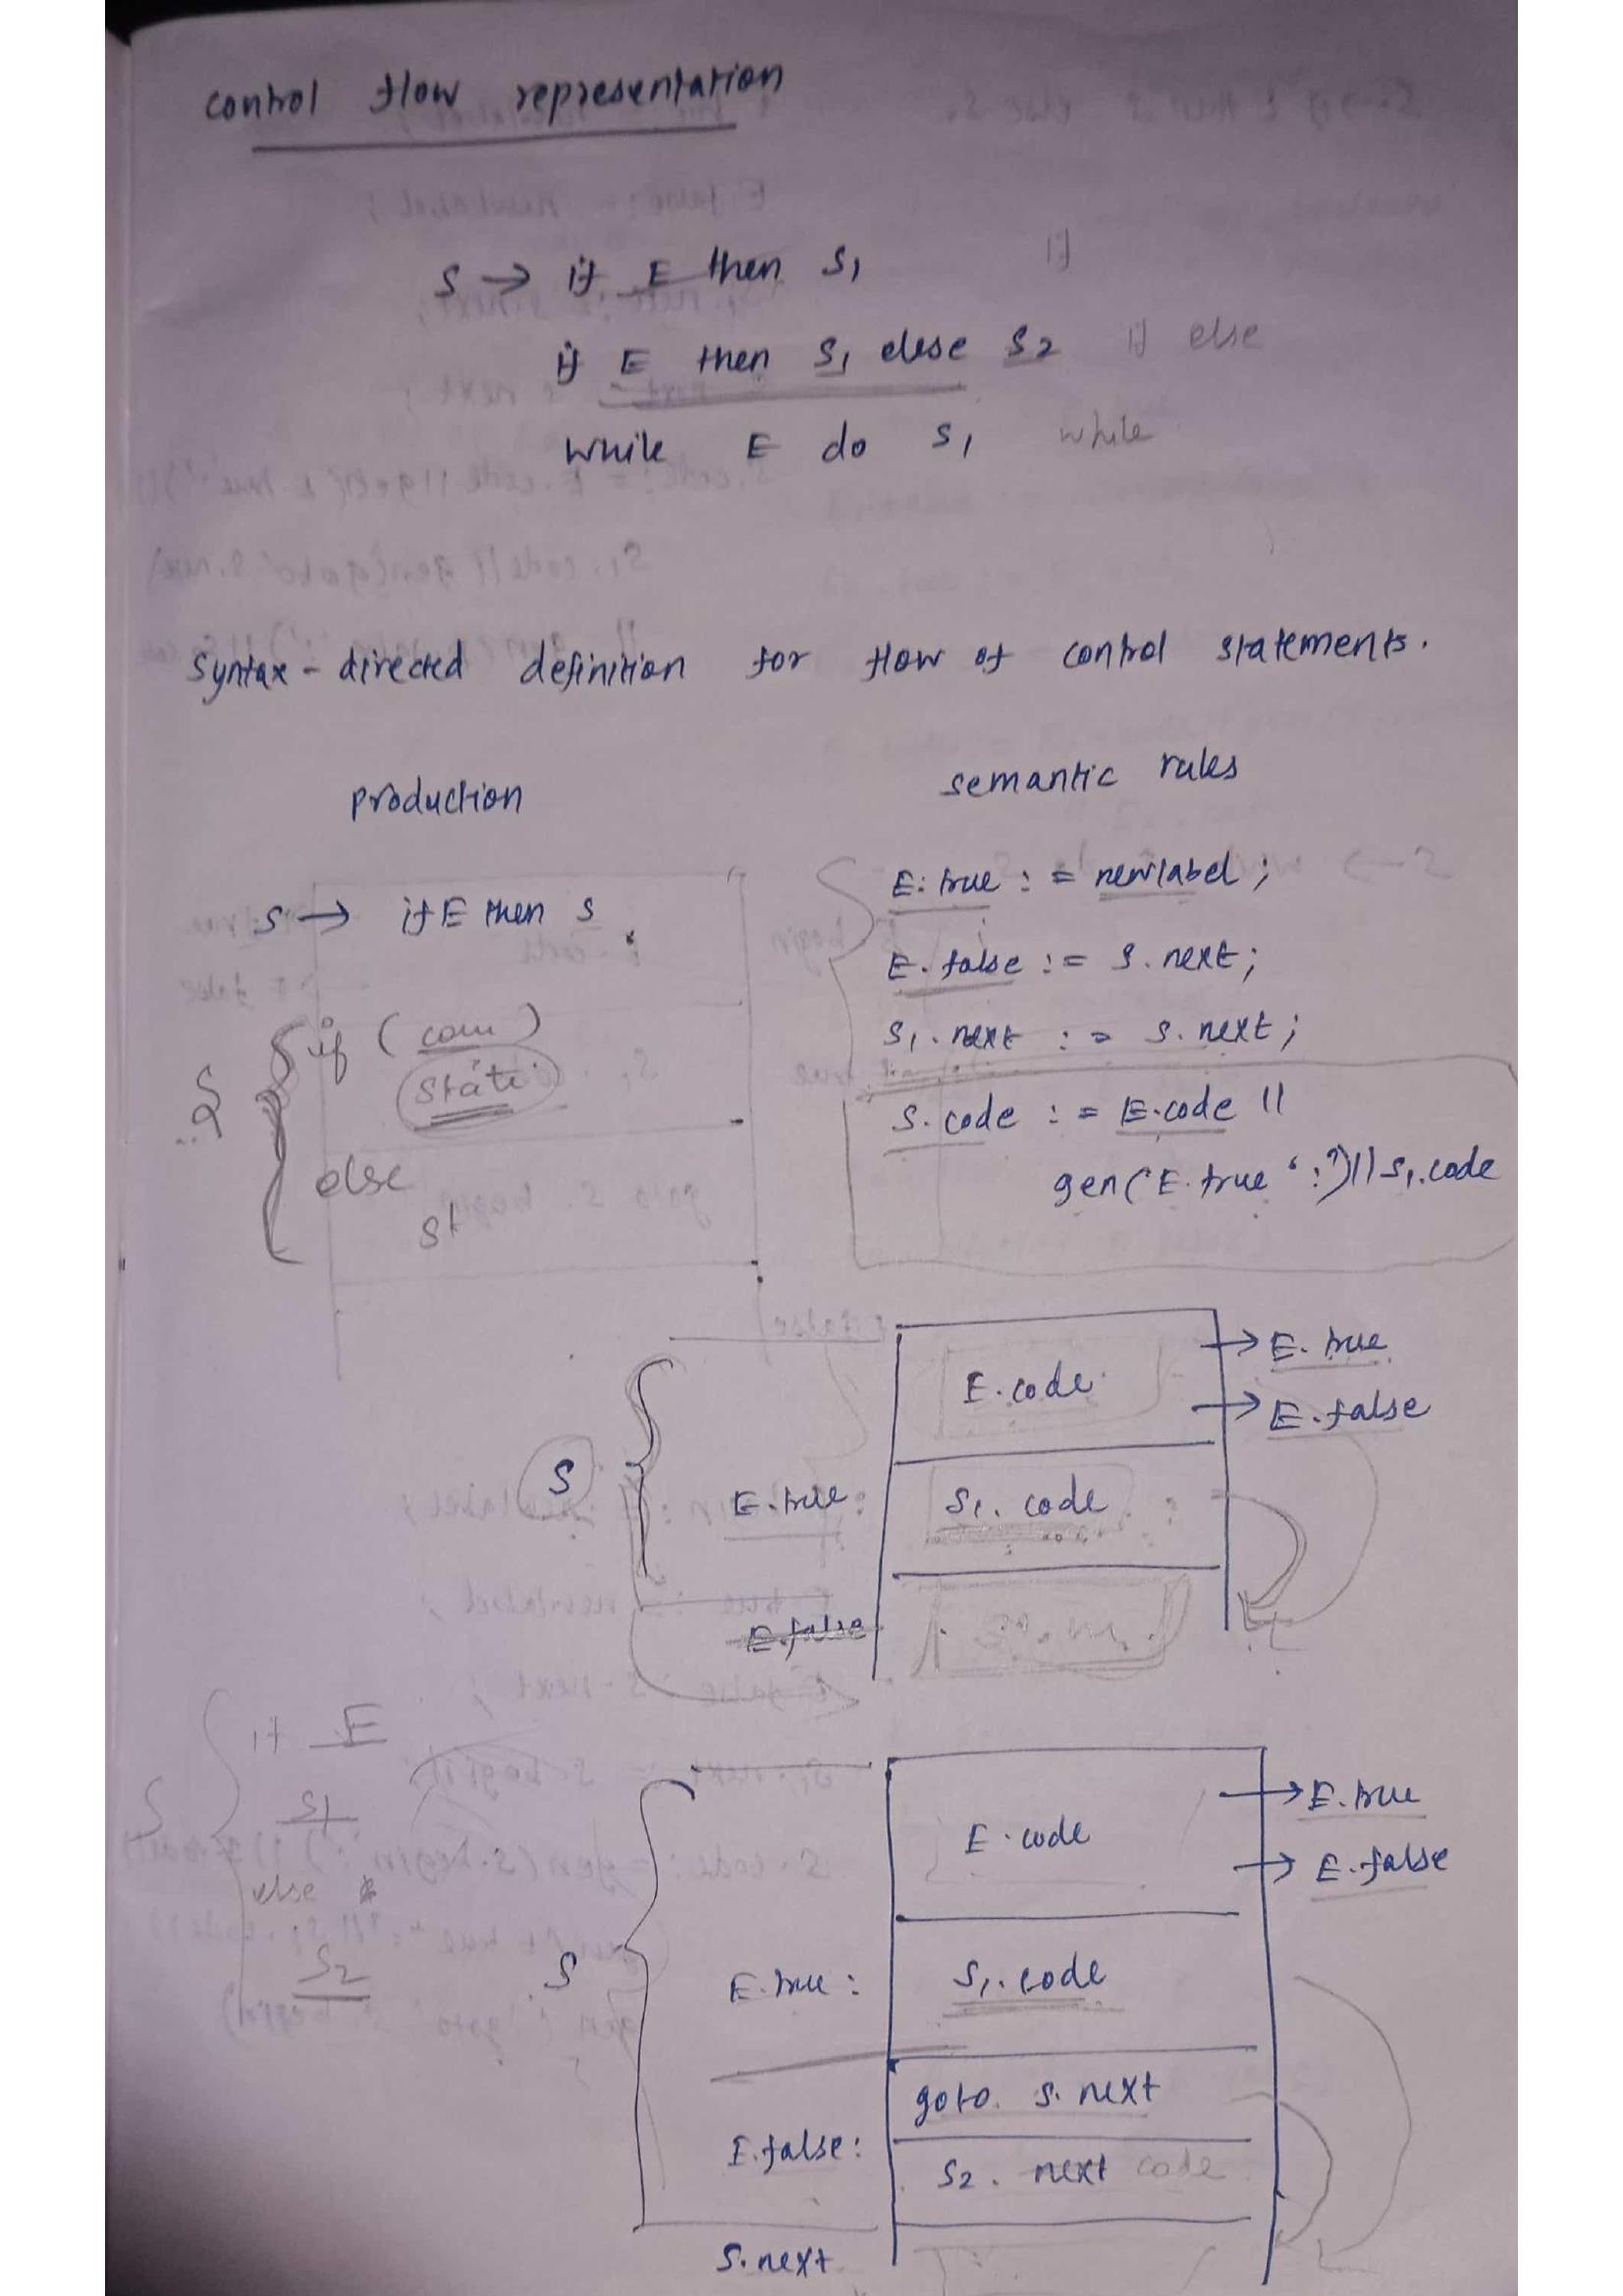 control flow representation
S → if E then S1 if
if E then S1 else S2 if else
while E do S1 while
Syntax-directed definition for flow of control statements.
production semantic rules
S → if E then S E.true := newlabel;
E.false := S.next;
S1.next := S.next;
S.code := E.code ||
gen('E.true ':')|| S1.code
S if (
else
st
E.code → E.true
→ E.false
S E.true : S1.code
E.false
S if E
S1
else
S2
E.code → E.true
→ E.false
S E.true : S1.code
goto S.next
E.false : S2. next code
S.next